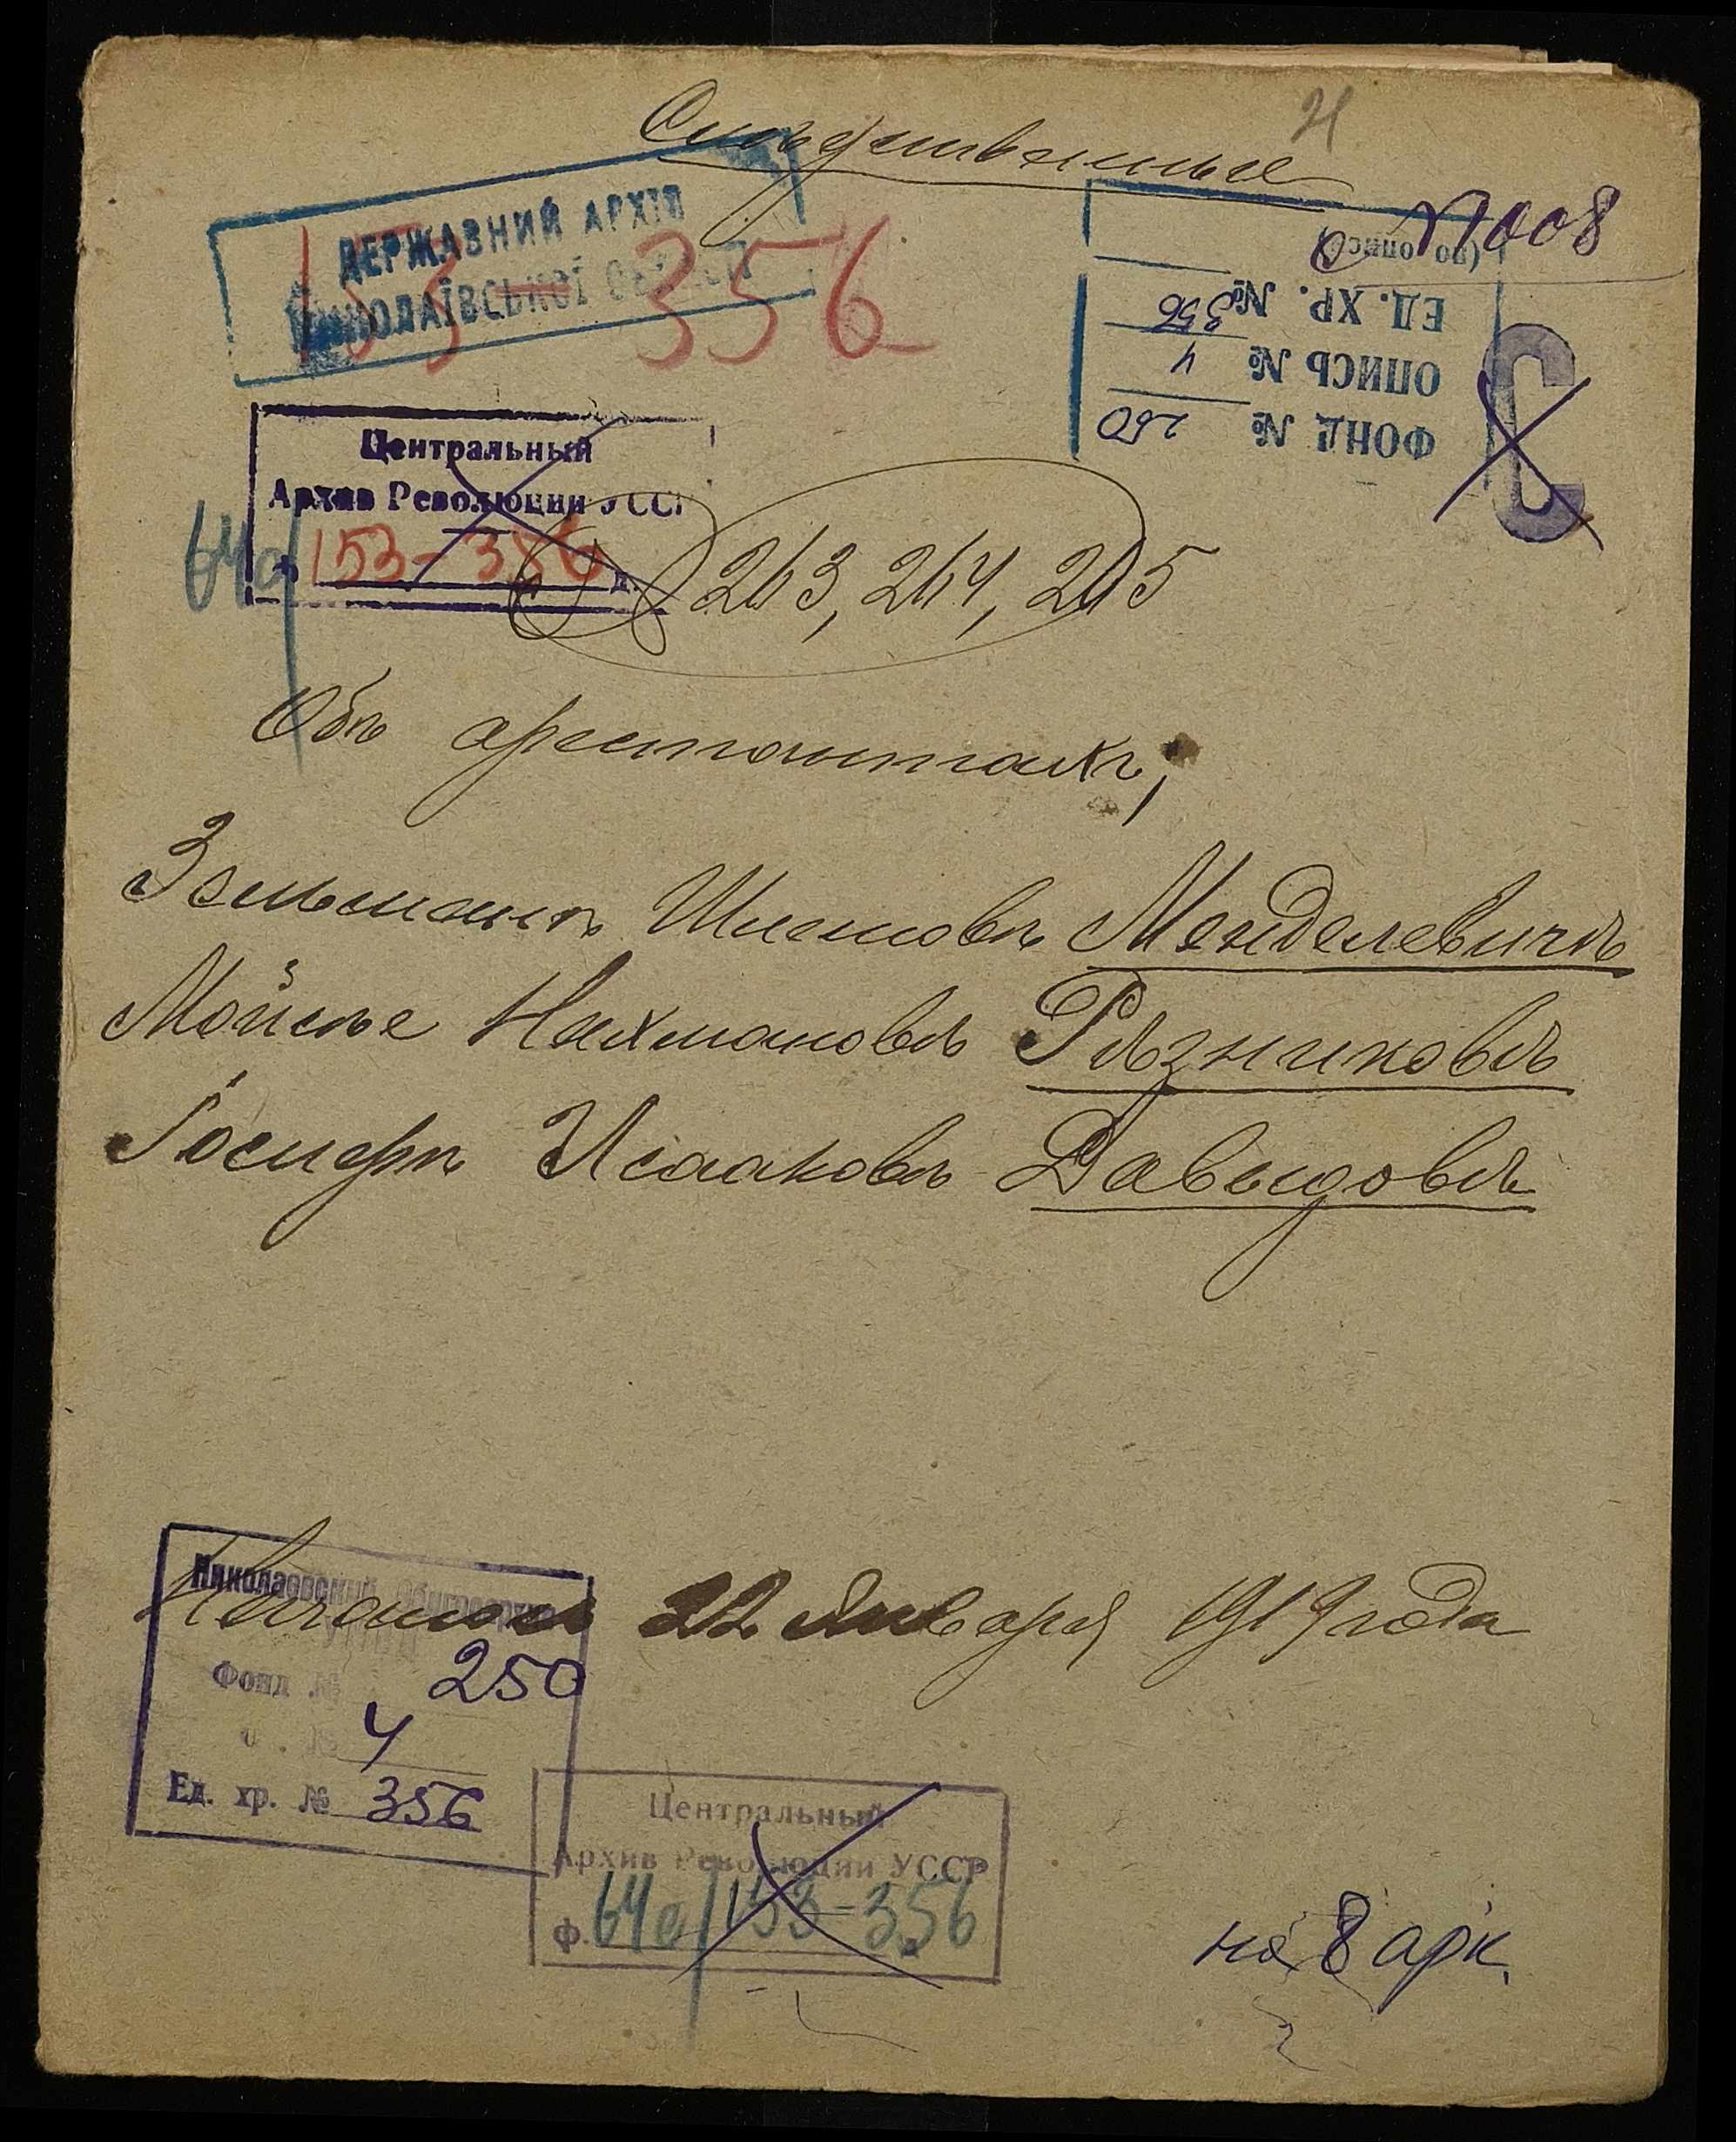 Слѣдственные
И
ДЕРЖАВНИЙ АРХІВ
МИКОЛАЇВСЬКОЇ ОБЛАСТІ
153-356
№ 1008
(по описи)
ЕД. ХР. № 356
ОПИСЬ № 4
ФОНД № 250
С
Центральный
Архив Революции УССР
64а/153-356 д.
263, 264, 265
Объ арестантахъ;
Зельманъ Шлемовъ Менделевичъ
Мойсѣе Нахмановъ Рѣзниковъ
Іосифъ Исааковъ Давыдовъ
Николаевский Облгосархив
УМВД
Фонд № 250
4
Ед. хр. № 356
Началось 22 Января 1919 года
Центральный
Архив Революции УССР
ф. 64а/153-356
на 8 арк.